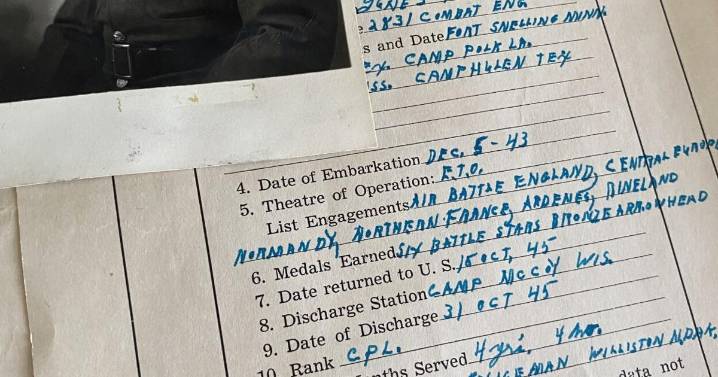 2831 COMBAT ENG
s and Date FORT SNELLING MINN
EX. CAMP POLK LA.
SS. CAMP HULEN TEX
4. Date of Embarkation DEC. 5 - 43
5. Theatre of Operation: E.T.O.
List Engagements AIR BATTLE ENGLAND, CENTRAL EUROPE
NORMANDY, NORTHERN FRANCE, ARDENES, RINELAND
6. Medals Earned SIX BATTLE STARS BRONZE ARROWHEAD
7. Date returned to U. S. 15 OCT, 45
8. Discharge Station CAMP McCOY WIS.
9. Date of Discharge 31 OCT 45
10 Rank CPL.
ths Served 4 yrs, 4 mo.
WILLISTON N.DAK,
data not